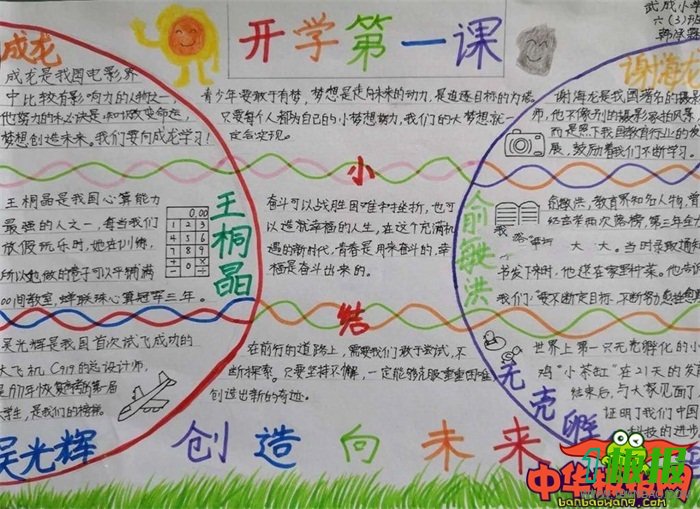 开学第一课
武成小学
六(3)班
成龙
成龙是我国电影界
中比较有影响力的人物之一,
他努力的水必诀是:知识改变命运,
梦想创造未来。我们要向成龙学习!
青少年要敢于有梦,梦想是走向未来的动力,是追逐目标的力量
只要每个人都为自己的小梦想努力,我们的大梦想就一
定会实现。
谢海龙
谢海龙是我国著名的摄影
师,他不像别的摄影家拍风景,
而是照下我国教育行业的发
展,鼓励着我们不断学习。
王桐晶
王桐晶是我国心算能力
最强的人之一,每当我们
放假玩乐时,她在训练,
所以她做的卷子可以平铺满
00间教室,蝉联珠心算冠军三年。
0.00
1 2 3
4 5 6
7 8 9
- 0 +
小
奋斗可以战胜困难和挫折,也可
以造就幸福的人生,在这个充满机
遇的新时代,青春是用来奋斗的,幸
福是奋斗出来的。
俞敏洪
俞敏洪,教育界知名人物,曾
经高考两次落榜,第三年在力
大 大。当时录取通知
书发下来时,他还在家里种菜。他告诉
我们:要不断定目标,不断努力
吴光辉
吴光辉是我国首次试飞成功的
大飞机C919的总设计师,
是77年恢复高考的第一届
大学生,是我们的榜样。
结
在前行的道路上,需要我们敢于尝试,不
断探索。只要坚持不懈,一定能够克服重重困难
创造出新的奇迹。
无壳孵
世界上第一只无壳孵化的小
鸡"小茶缸"在21天的发育
结束后,与大家见面了
证明了我们中国
科技的进步
创造向未来
中华报报网
banbaowang.com